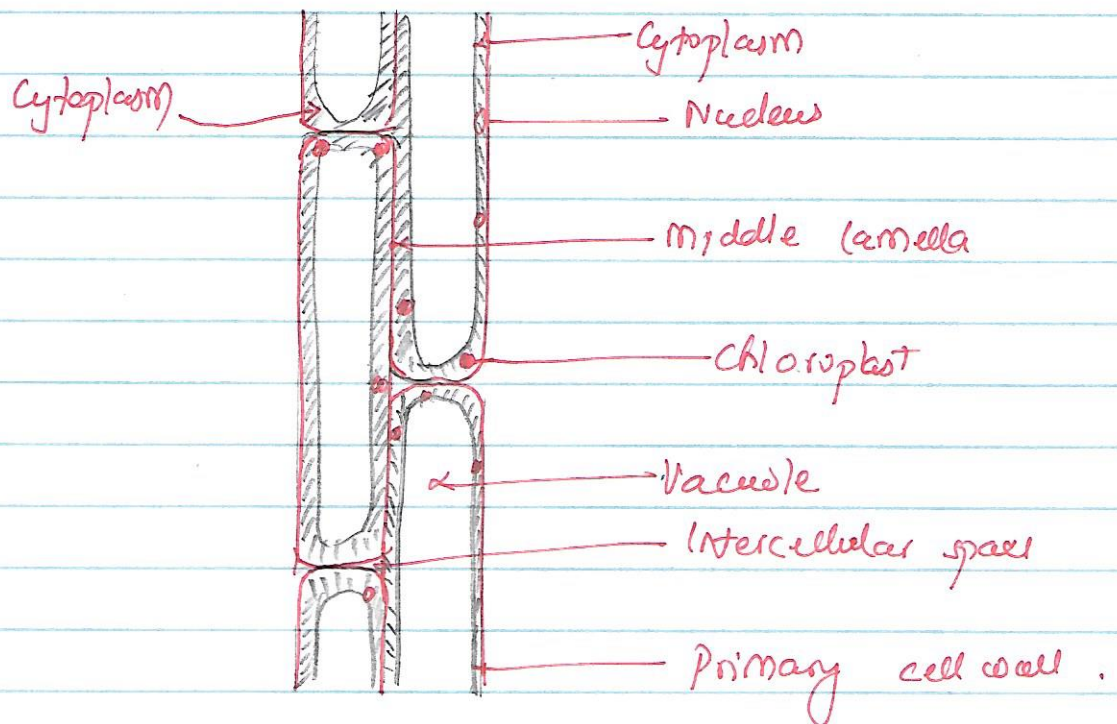 Cytoplasm
Cytoplasm
Nucleus
Middle lamella
Chloroplast
Vacuole
Intercellular space
Primary cell wall .